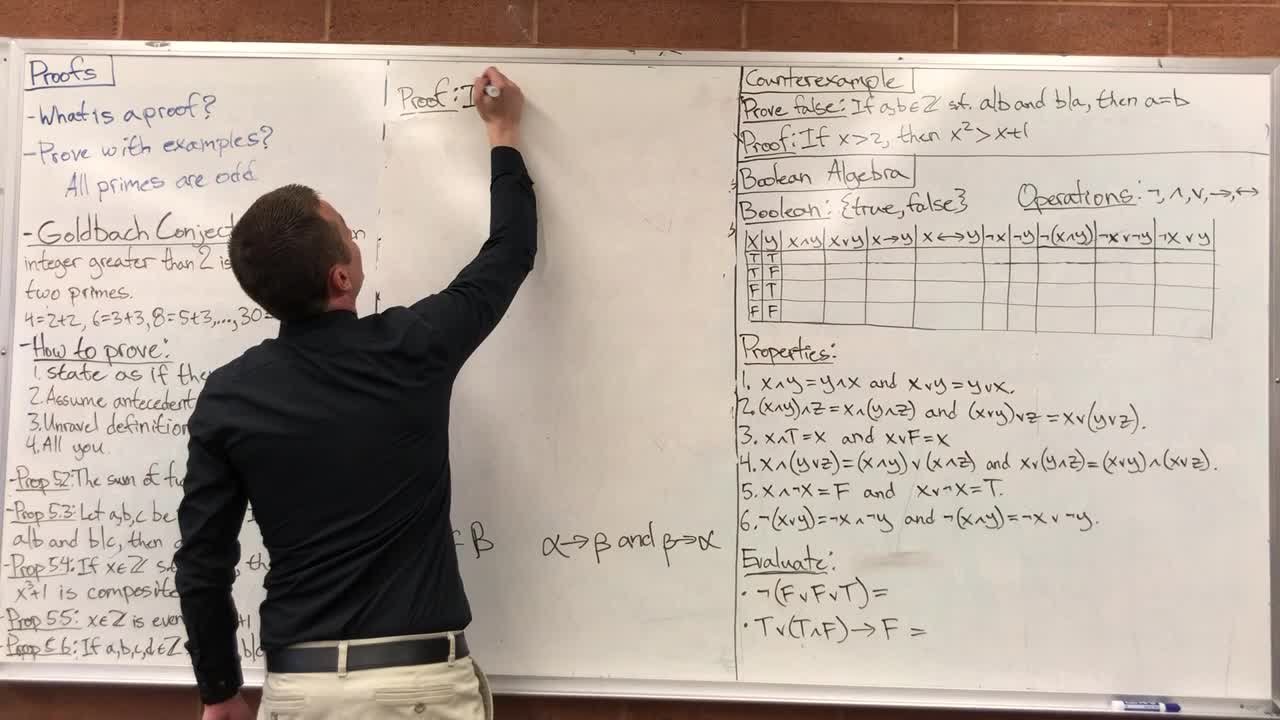 Proofs
-What is a proof?
-Prove with examples?
All primes are odd
-Goldbach Conject
integer greater than 2 is
two primes.
4=2+2, 6=3+3, 8=5+3,...,30=
-How to prove:
1. state as if the
2. Assume antecedent
3. Unravel definition
4. All you.
-Prop 5.2: The sum of
-Prop 5.3: Let a,b,c be
a|b and b|c, then
-Prop 5.4: If x∈ℤ
x³+1 is composite
-Prop 5.5: x∈ℤ is eve +1
-Prop 5.6: If a,b,c,d∈ℤ b|c
Proof: I
B α→β and β→α
Counterexample
Prove false: If a,b∈ℤ s.t. a|b and b|a, then a=b
Proof: If x>2, then x²>x+1
Boolean Algebra
Boolean: {true, false} Operations: ¬,∧,∨,→,↔
x y x∧y x∨y x→y x↔y ¬x ¬y ¬(x∧y) ¬x∨¬y ¬x∨y
T T
T F
F T
F F
Properties:
1. x∧y=y∧x and x∨y=y∨x.
2. (x∧y)∧z=x∧(y∧z) and (x∨y)∨z=x∨(y∨z).
3. x∧T=x and x∨F=x
4. x∧(y∨z)=(x∧y)∨(x∧z) and x∨(y∧z)=(x∨y)∧(x∨z).
5. x∧¬x=F and x∨¬x=T.
6. ¬(x∨y)=¬x∧¬y and ¬(x∧y)=¬x∨¬y.
Evaluate:
·¬(F∨F∨T)=
·T∨(T∧F)→F=